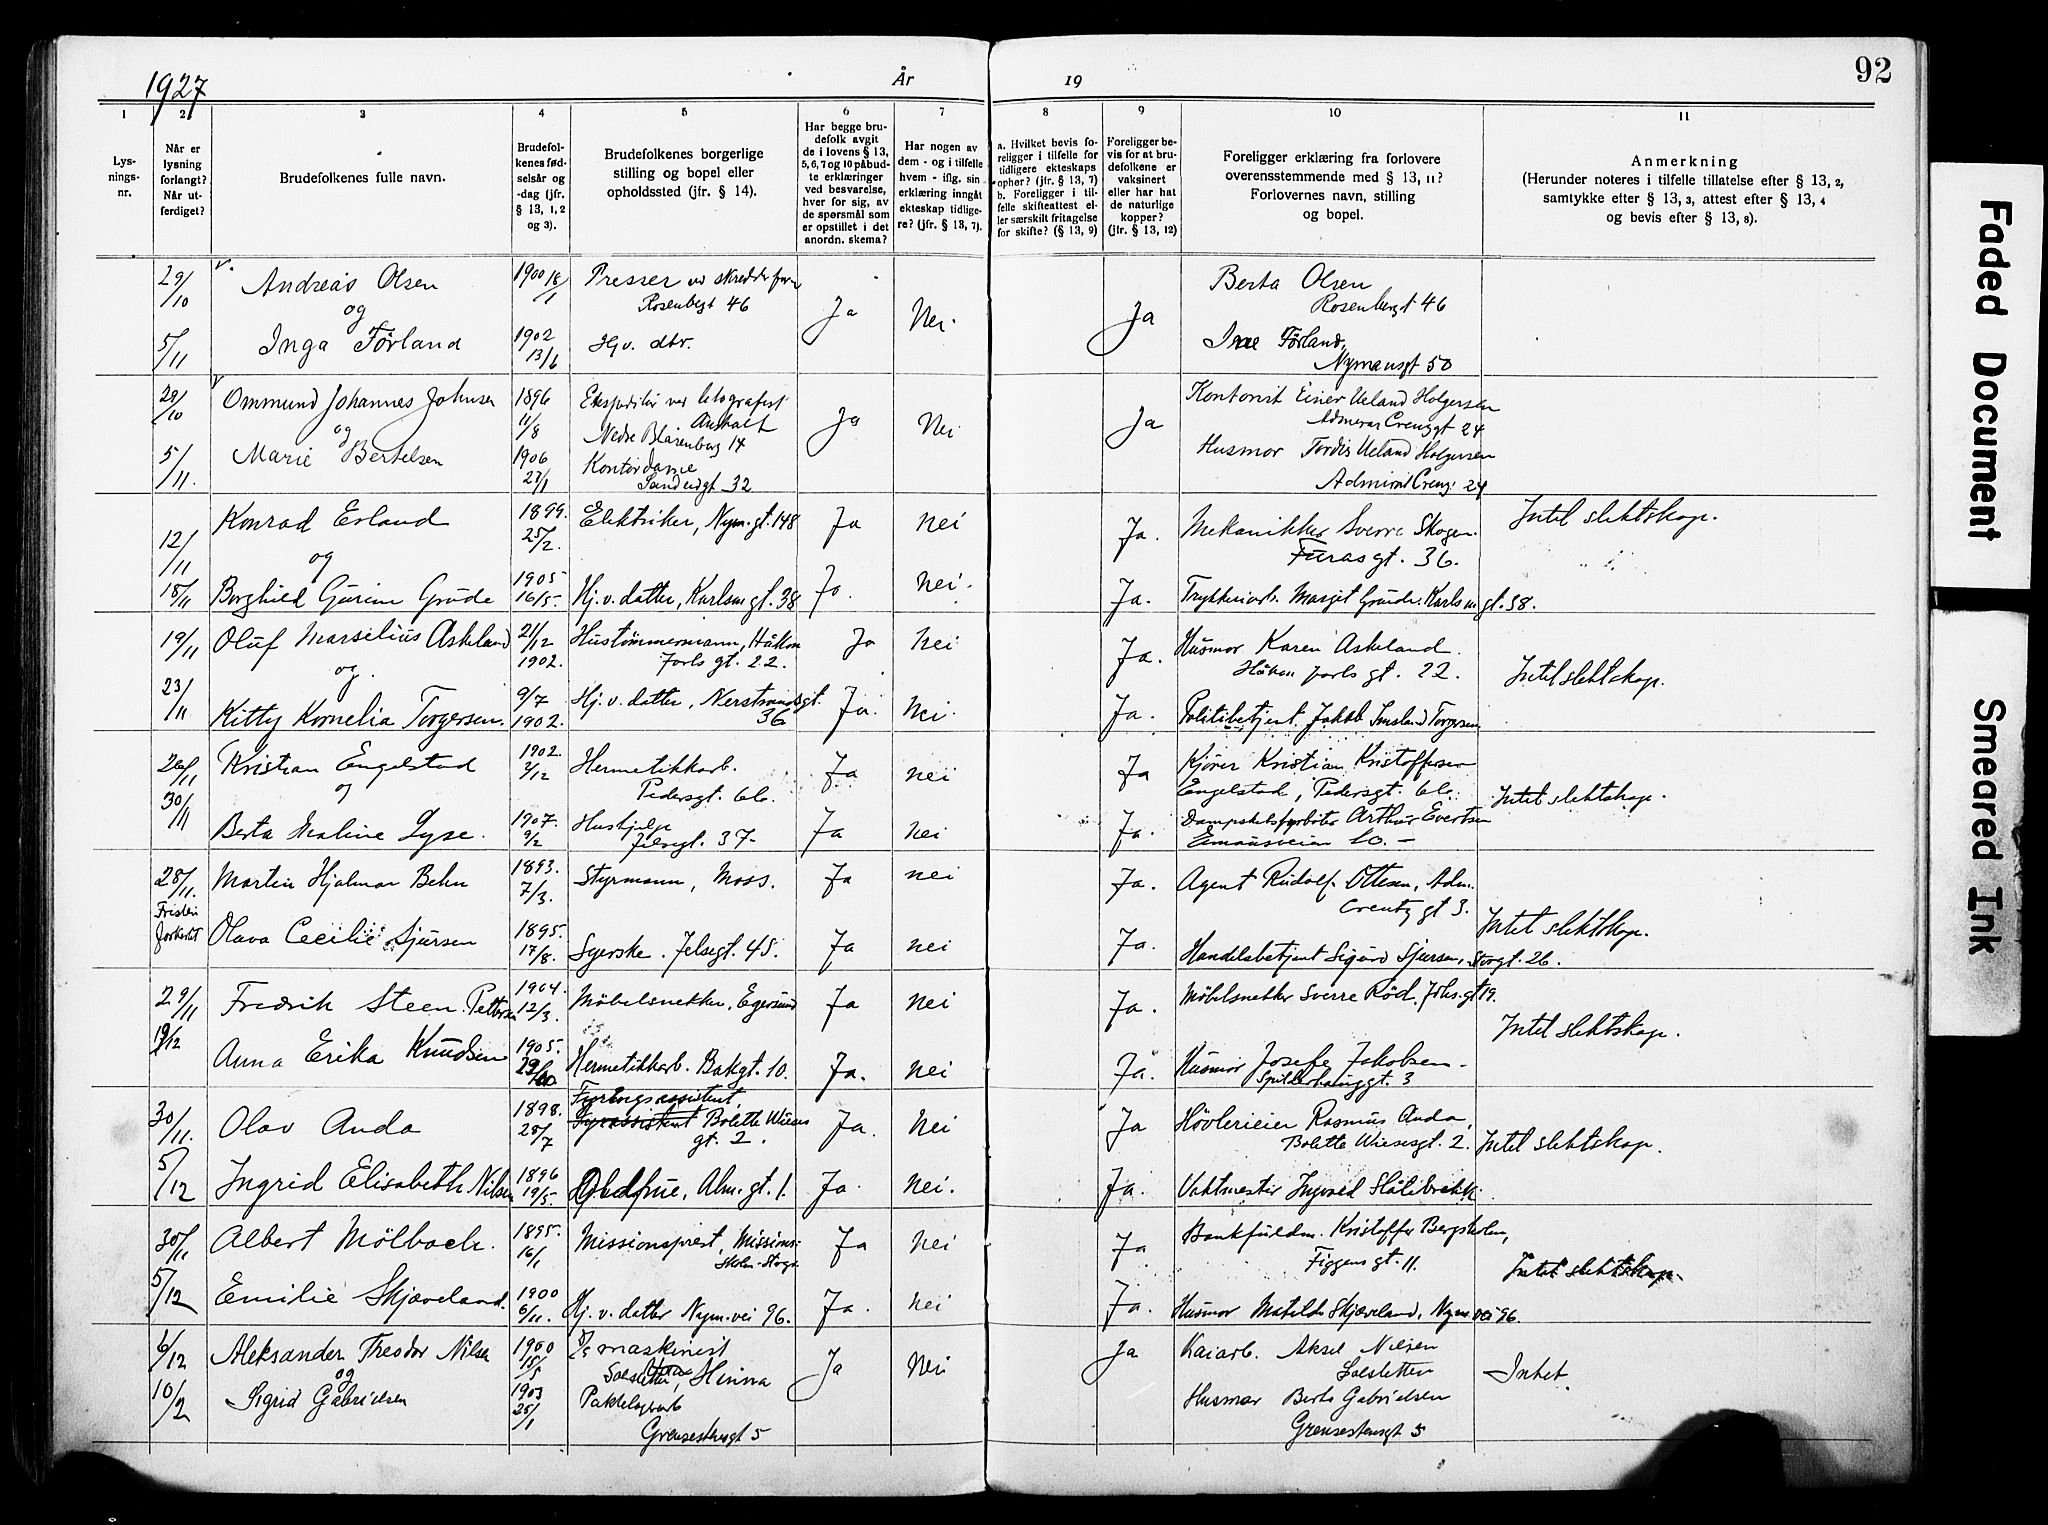 1927
År
19
92
1
2
3
4
5
6
7
8
9
10
11
Lys-
nings-
nr.
Når er
lysning
forlangt?
Når ut-
ferdiget?
Brudefolkenes fulle navn.
Brudefol-
kenes fød-
selsår og
-dag (jfr.
§ 13, 1, 2
og 3).
Brudefolkenes borgerlige
stilling og bopel eller
opholdssted (jfr. § 14).
Har begge bru-
defolk avgit
de i lovens § 13,
5, 6, 7 og 10 påbud-
te erklæringer
ved besvarelse,
hver for sig, av
de spørsmål som
er opstillet i det
anordn. skema?
Har nogen av
dem - og i tilfelle
hvem - iflg. sin
erklæring inngåt
ekteskap tidlige-
re? (jfr. § 13, 7).
a. Hvilket bevis fo-
religger i tilfelle for
tidligere ekteskaps
ophør? (jfr. § 13, 7)
b. Foreligger i til-
felle skifteattest el-
ler særskilt fritagelse
for skifte? (§ 13, 9)
Foreligger be-
vis for at bru-
defolkene er
vaksinert
eller har hat
de naturlige
kopper?
(jfr. § 13, 12)
Foreligger erklæring fra forlovere
overensstemmende med § 13, 11?
Forlovernes navn, stilling
og bopel.
Anmerkning
(Herunder noteres i tilfelle tillatelse efter § 13, 2,
samtykke efter § 13, 3, attest efter § 13, 4
og bevis efter § 13, 8).
29/10 Andreas Olsen 1900 18/1 Presser Berta Olsen
og Rosenbgt 46 Ja Nei. Ja Rosenbergt 46
5/11 Inga Førland 1902 13/6 Hj. v. dtr. Førland,
Nymansgt 50
29/10 Ommund Johannes Johnsen 1896 11/8 Kontorist Einer Ueland Holgersen
og Nedre Blåsenborg 14 Ja Nei Ja 24
5/11. Marie Bertelsen 1906 Kontordame Husmor Tordis Ueland Holgersen
32 24
Konrad Erland 1899. 25/2. Elektriker, Nym. gt. 148 Ja nei Ja. Mekanikker Sverre Skogen. Intet slektskap.
12/11 og Furasgt. 36.
18/11 Borghild Gurine Grude 1905 16/5. Hj. v. datter, Karlsm gt. 38 Ja. nei. Ja. Margit Grude. Karlsm gt. 38.
19/11 Oluf Marselius Askeland 21/12 1902. Hustømmermann, Håkon Ja nei Ja. Husmor Karen Askeland.
og. Jarls gt. 22. Håkon Jarls gt. 22. Intet slektskap.
23/11 Kitty Kornelia Torgersen. 9/7 1902. Hj. v. datter, Nerstrandsgt. 36 Ja. nei. Ja. Politibetjent Jakob Torgersen
26/11 Kristian Engelstad 1902. Hermetikkarb. Ja nei Ja Kjører Kristian Kristoffersen
og Pedersgt. Engelstad, Pedersgt. Intet slektskap.
30/11 Berta Maline Lyse. 1907. 9/2 Hushjelp Ja nei Ja. Arthur Evertsen
Jelsegt. 37- Emausveien 10. -
28/11. Martin Hjalmar Behn 1893. 7/3. Styrmann, Moss. Ja nei Ja. Agent Rudolf Ottesen, Adm.
Fristen Creutz gt 3.
forkortet Olava Cecilie Sjursen 1895. 17/8. Syerske. Jelsegt. 45. Ja nei Ja. Handelsbetjent Sigurd Sjursen, Storgt. 26. Intet slektskap.
29/11 Fredrik Steen Pettersen 1904. 12/3. Møbelsnekker, Egersund Ja nei Ja. Møbelsnekker Sverre Rød, Johs. gt 19.
Intet slektskap.
Anna Erika Knudsen 1905. Hermetikkarb. Bakgt. 10. Ja. nei Ja. Husmor Josefe Jakobsen -
Spilderhauggt. 3
30/11. Olav Anda 1898. 28/7 Bolette Wiesesgt. 2. Ja. nei Ja Høvlerieier Rasmus Anda,
Bolette Wiesesgt. 2. Intet slektskap.
5/12 Ingrid Elisabeth Nilsen 1896 19/5. Alm. gt. 1. Ja. nei. Ja. Vaktmester Ingvald Slåttebrekk.
30/11 Albert Mölbach. 1895. 16/1 Missionsprest, Missions- Ja nei Ja Bankfuldm. Kristoffer Bergsholm,
skolen - Stvgr. Figgens gt. 11. Intet slektskap.
5/12 Emilie Skjæveland. 1900 6/11. Hj. v. datter Nym. vei 96. Ja. nei Ja. Husmor Matilde Skjæveland, Nym. vei 96.
6/12 Aleksander Theodor Nilsen 1900 15/5 maskinist Kaiarb. Aksel Nilsen
og Solsletten, Hinna Ja Nei Ja Solsletten Intet.
10/2 Sigrid Gabrielsen 1903 25/1 Husmor Berta Gabrielsen
Grensestensgt 5 Grensestensgt 5
Faded Document
Smeared Ink